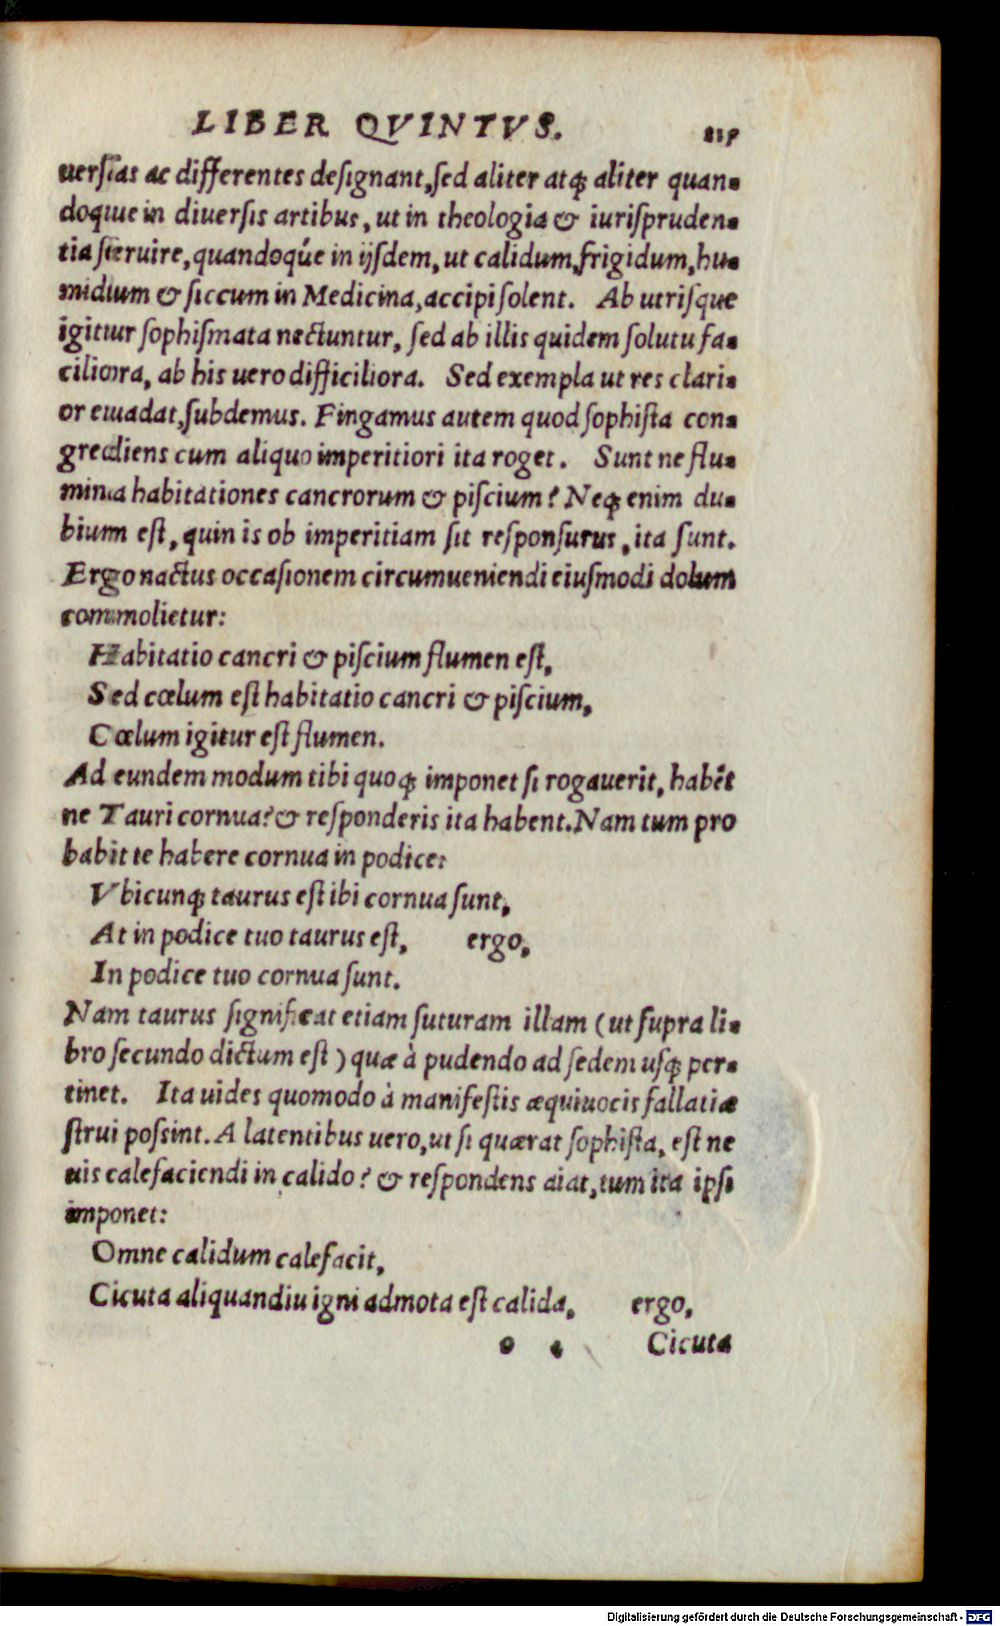 LIBER QVINTVS. 215
uersas ac differentes designant, sed aliter atq; aliter quan-
doque in diuersis artibus, ut in theologia & iurispruden-
tia seruire, quandoqúe in ijsdem, ut calidum, frigidum, hu-
midum & siccum in Medicina, accipi solent. Ab utrisque
igitur sophismata nectuntur, sed ab illis quidem solutu fa-
ciliora, ab his uero difficiliora. Sed exempla ut res clari-
or euadat, subdemus. Fingamus autem quod sophista con-
grediens cum aliquo imperitiori ita roget. Sunt ne flu-
mina habitationes cancrorum & piscium? Neq; enim du-
bium est, quin is ob imperitiam sit responsurus, ita sunt.
Ergo nactus occasionem circumueniendi eiusmodi dolum
commolietur:
Habitatio cancri & piscium flumen est,
Sed cœlum est habitatio cancri & piscium,
Cœlum igitur est flumen.
Ad eundem modum tibi quoq; imponet si rogauerit, habẽt
ne Tauri cornua? & responderis ita habent. Nam tum pro
babit te habere cornua in podice:
Vbicunq; taurus est ibi cornua sunt,
At in podice tuo taurus est, ergo,
In podice tuo cornua sunt.
Nam taurus significat etiam suturam illam (ut supra li-
bro secundo dictum est) quæ à pudendo ad sedem usq; per-
tinet. Ita uides quomodo à manifestis æquiuocis fallatiæ
strui possint. A latentibus uero, ut si quærat sophista, est ne
uis calefaciendi in calido? & respondens aiat, tum ita ipsi
imponet:
Omne calidum calefacit,
Cicuta aliquandiu igni admota est calida, ergo,
o 4 Cicuta
Digitalisierung gefördert durch die Deutsche Forschungsgemeinschaft - DFG